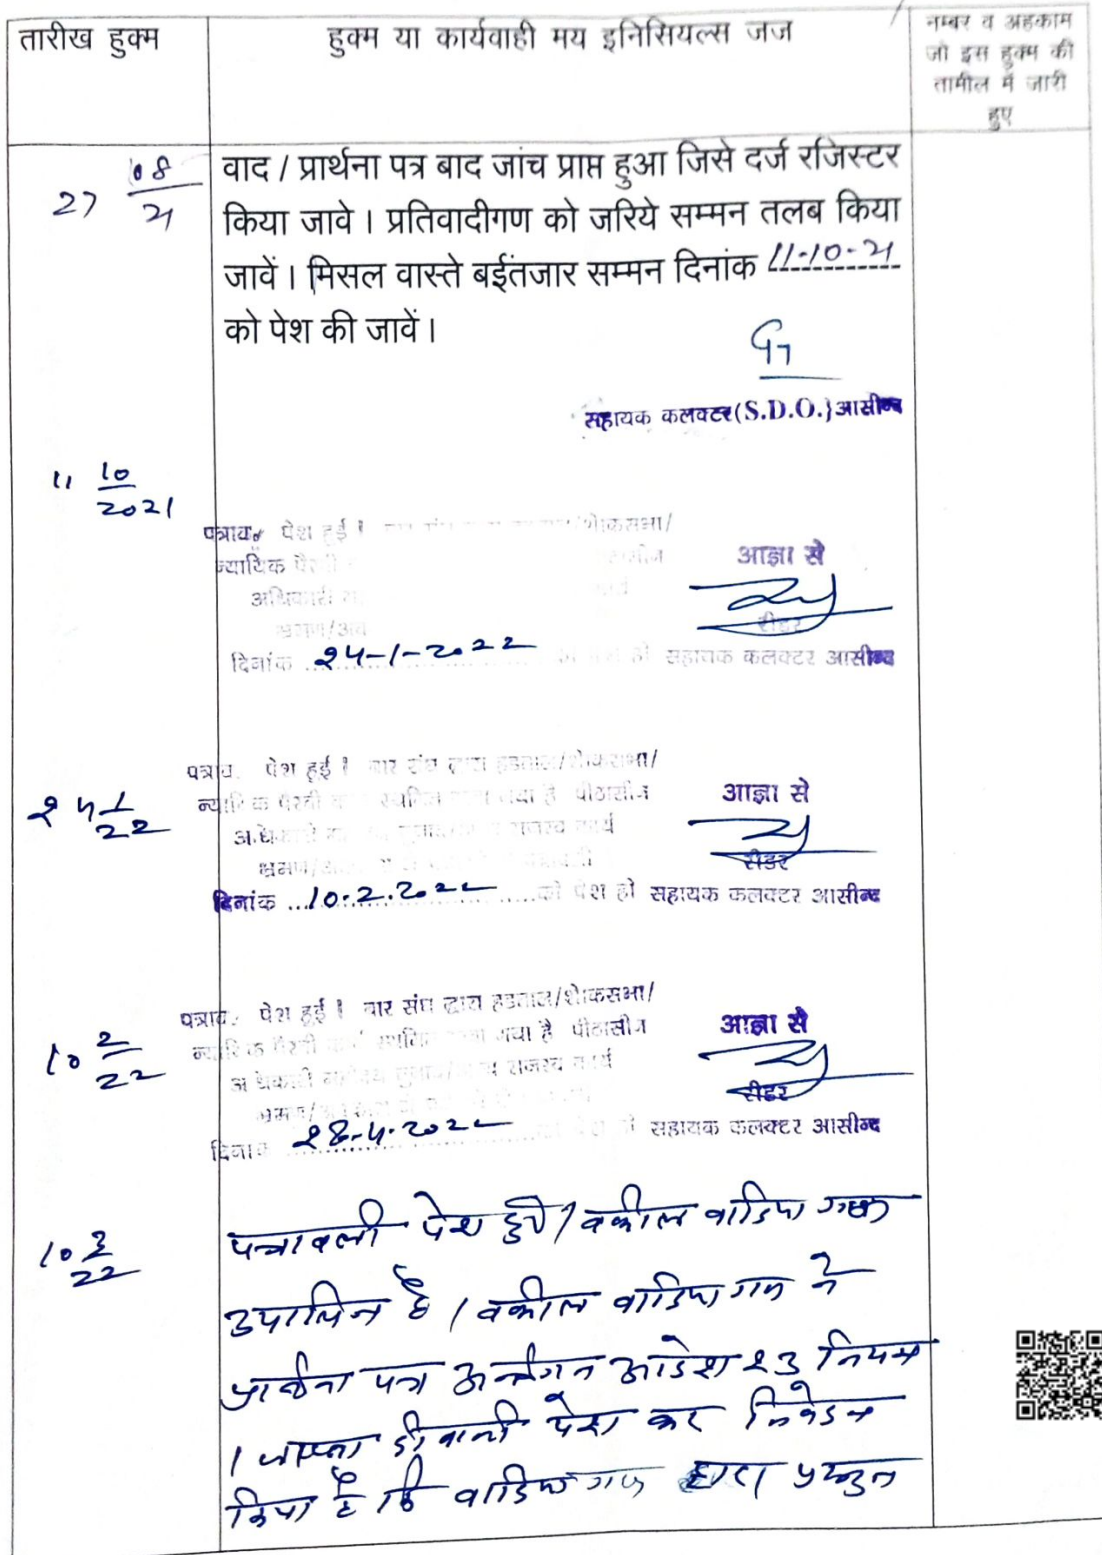 तारीख हुक्म
हुक्म या कार्यवाही मय इनिसियल्स जज
नम्बर व अहकाम
जो इस हुक्म की
तामील में जारी
हुए
27 08/21
वाद / प्रार्थना पत्र बाद जांच प्राप्त हुआ जिसे दर्ज रजिस्टर
किया जावे । प्रतिवादीगण को जरिये सम्मन तलब किया
जावें । मिसल वास्ते बईंतजार सम्मन दिनांक 11-10-21
को पेश की जावें ।
सहायक कलक्टर(S.D.O.)आसीन्द
11 10/2021
पेश हुई । शोकसभा/
न्यायिक
अधिकारी
आज्ञा से
रीडर
दिनांक 24-1-2022 को पेश हो सहायक कलक्टर आसीन्द
24 1/22
पेश हुई । बार संघ द्वारा हडताल/शोकसभा/
न्यायिक पैरवी स्थगित गया है पीठासीन
राजस्व कार्य
भ्रमण/
आज्ञा से
रीडर
दिनांक 10.2.2022 को पेश हो सहायक कलक्टर आसीन्द
10 2/22
पेश हुई । बार संघ द्वारा हडताल/शोकसभा/
न्यायिक पैरवी स्थगित गया है पीठासीन
राजस्व कार्य
आज्ञा से
रीडर
दिनांक 28-4-2022 को पेश हो सहायक कलक्टर आसीन्द
10 3/22
पत्रावली पेश हुई / वकील वादिया गण
उपस्थित है / वकील वादिया गण ने
प्रार्थना पत्र अन्तर्गत आदेश 23 नियम
1 जाप्ता दीवानी पेश कर निवेदन
किया है कि वादिया गण द्वारा प्रस्तुत